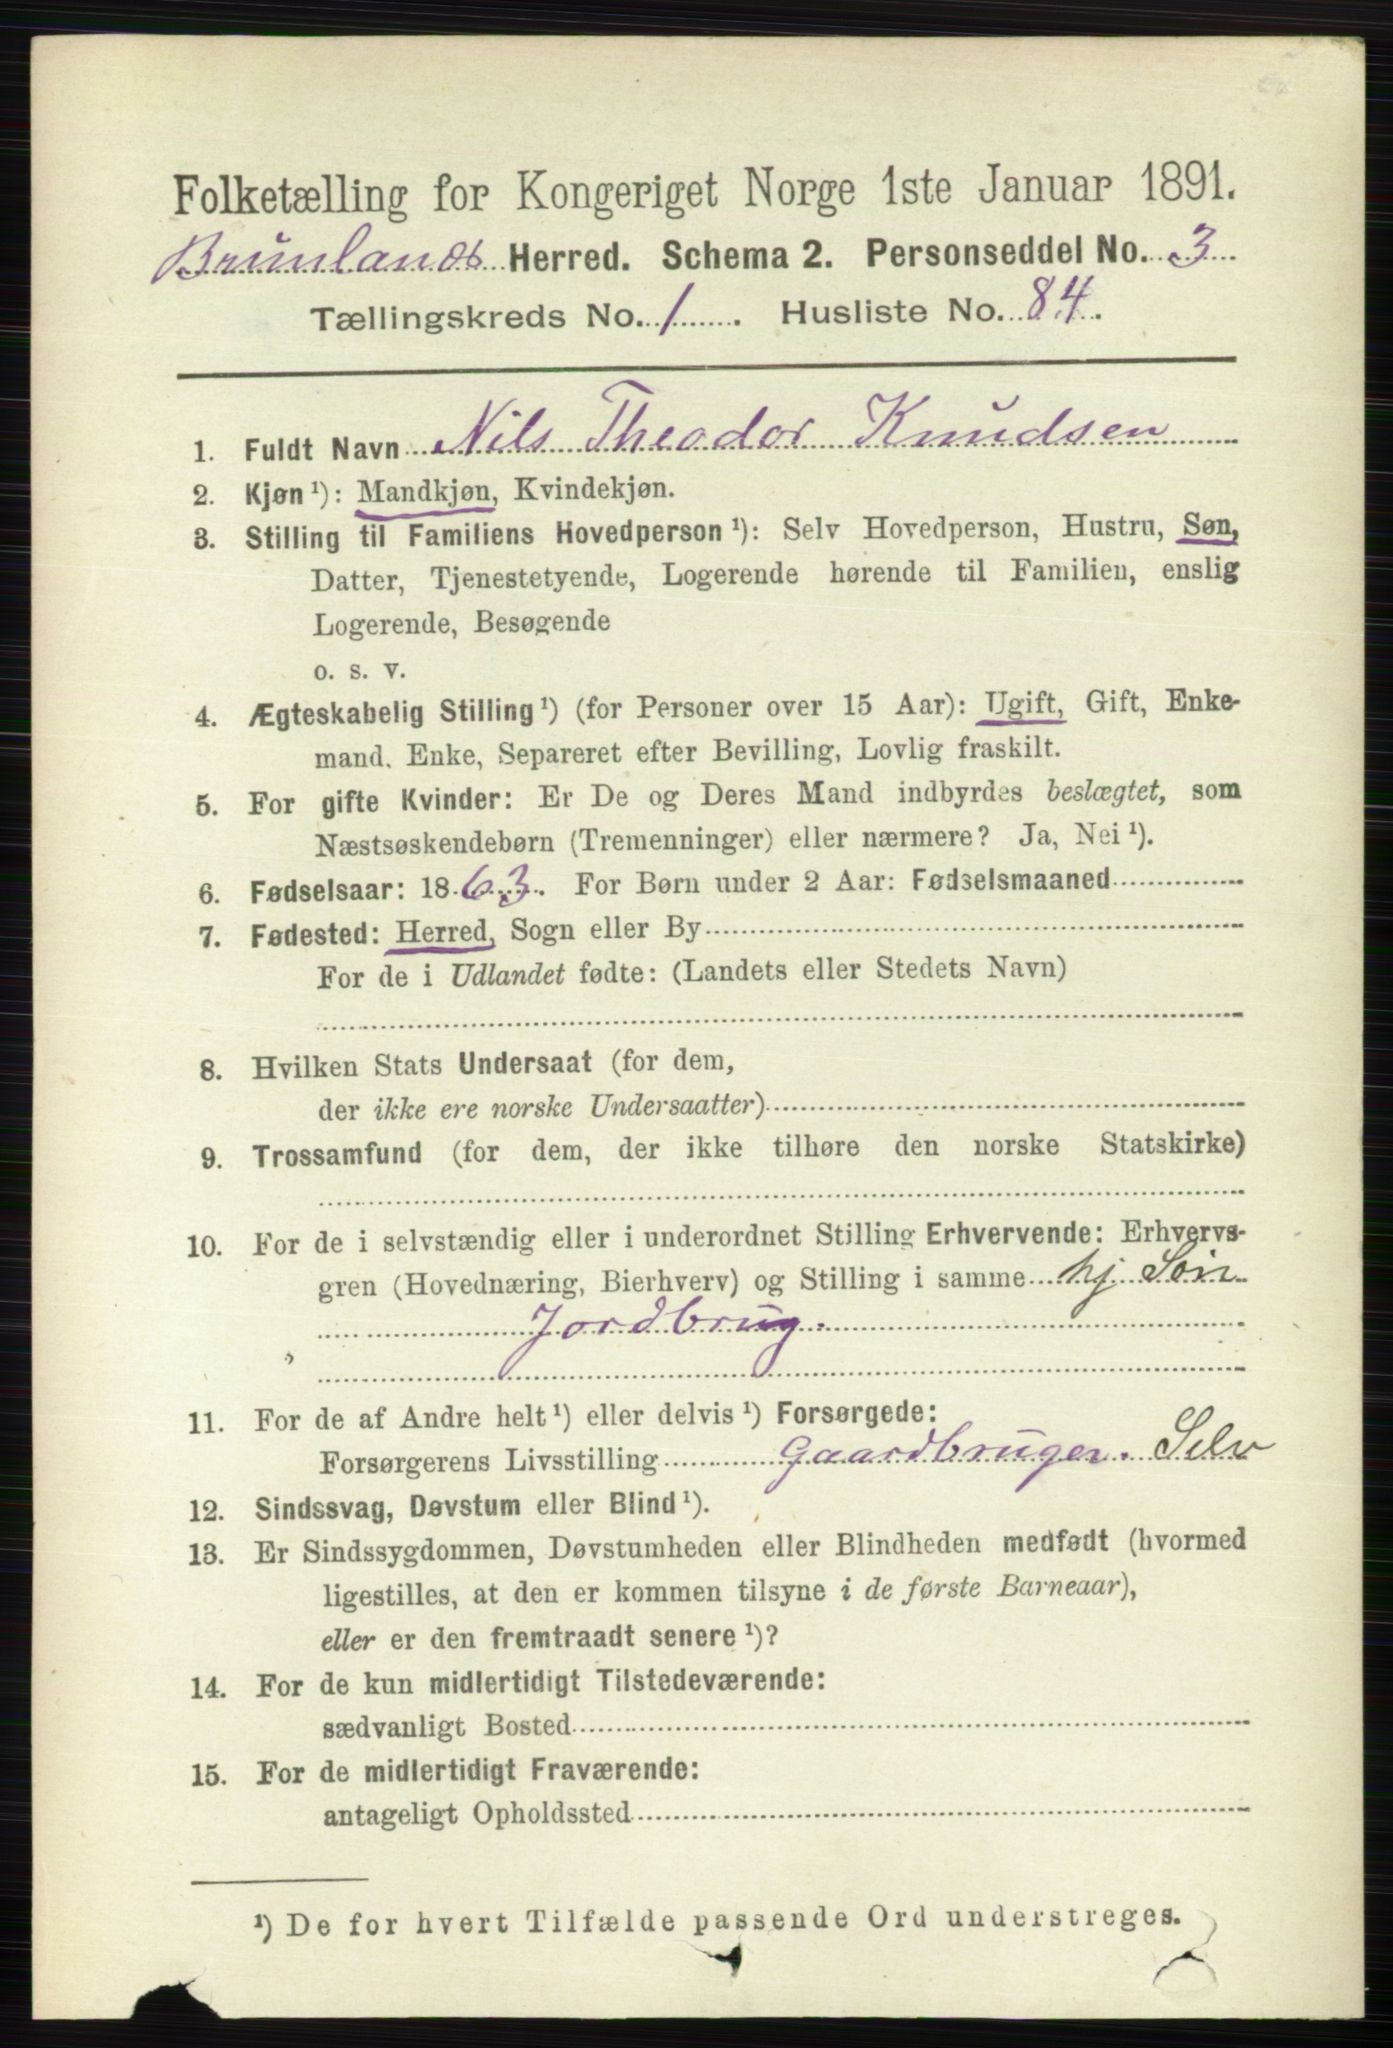 Folketælling for Kongeriget Norge 1ste Januar 1891.
Brunlanæs Herred. Schema 2. Personseddel No. 3
Tællingskreds No. 1. Husliste No. 84.
1. Fuldt Navn Nils Theodor Knudsen
2. Kjøn ¹): Mandkjøn, Kvindekjøn.
3. Stilling til Familiens Hovedperson ¹): Selv Hovedperson, Hustru, Søn,
Datter, Tjenestetyende, Logerende hørende til Familien, enslig
Logerende, Besøgende
o. s. v.
4. Ægteskabelig Stilling ¹) (for Personer over 15 Aar): Ugift, Gift, Enke-
mand. Enke, Separeret efter Bevilling, Lovlig fraskilt.
5. For gifte Kvinder: Er De og Deres Mand indbyrdes beslægtet, som
Næstsøskendebørn (Tremenninger) eller nærmere? Ja, Nei ¹).
6. Fødselsaar: 1863. For Børn under 2 Aar: Fødselsmaaned
7. Fødested: Herred, Sogn eller By
For de i Udlandet fødte: (Landets eller Stedets Navn)
8. Hvilken Stats Undersaat (for dem,
der ikke ere norske Undersaatter)
9. Trossamfund (for dem, der ikke tilhøre den norske Statskirke)
10. For de i selvstændig eller i underordnet Stilling Erhvervende: Erhvervs-
gren (Hovednæring, Bierhverv) og Stilling i samme hj Søn
Jordbrug.
11. For de af Andre helt ¹) eller delvis ¹) Forsørgede:
Forsørgerens Livsstilling Gaardbruger. Selv
12. Sindssvag, Døvstum eller Blind ¹).
13. Er Sindssygdommen, Døvstumheden eller Blindheden medfødt (hvormed
ligestilles, at den er kommen tilsyne i de første Barneaar),
eller er den fremtraadt senere ¹)?
14. For de kun midlertidigt Tilstedeværende:
sædvanligt Bosted
15. For de midlertidigt Fraværende:
antageligt Opholdssted
¹) De for hvert Tilfælde passende Ord understreges.